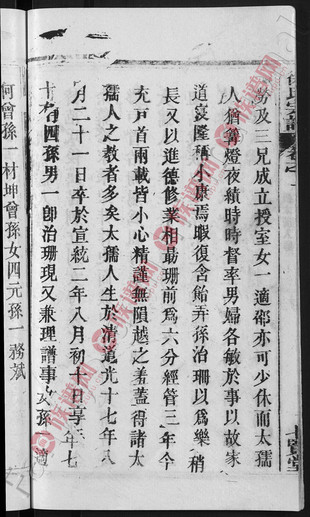 勞及三兄成立授室女一適鄒亦可少休而太孺
人猶篝燈夜績時時督率男婦各敏於事以故家
道寖隆稱小康焉暇復含飴弄孫治珊以爲樂稍
長又以進德修業相勗珊前爲六分經管三年今
充戸首兩載皆小心精謹無隕越之羞蓋得諸太
孺人之教者多矣太孺人生於清道光十七年八
月二十一日卒於宣統二年八月初十日享年七
十有四孫男一卽治珊現又兼理譜事女孫一適
何曾孫一材坤曾孫女四元孫一務斌
族譜网
族譜网
族譜网